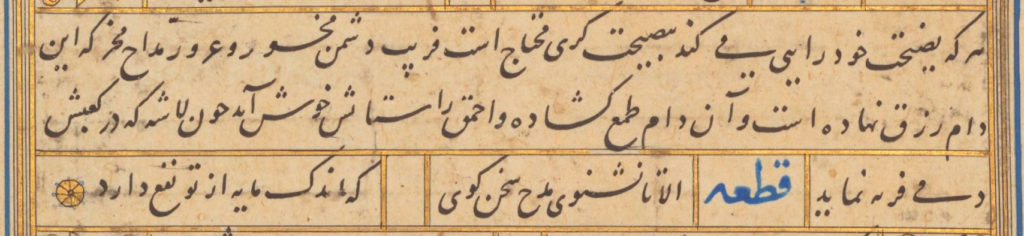 هر که نصیحت خود رایی می کند بنصیحت کری محتاج است فریب دشمن مخور و غرور مداح مخر که این
دام رزق نهاده است و آن دام طمع کشاده و احمق را ستایش خوش آید چون لاشه که در کعبش
دمی فربه نماید قطعه الا تا نشنوی مدح سخن کوی که اندک مایه از تو نفع دارد